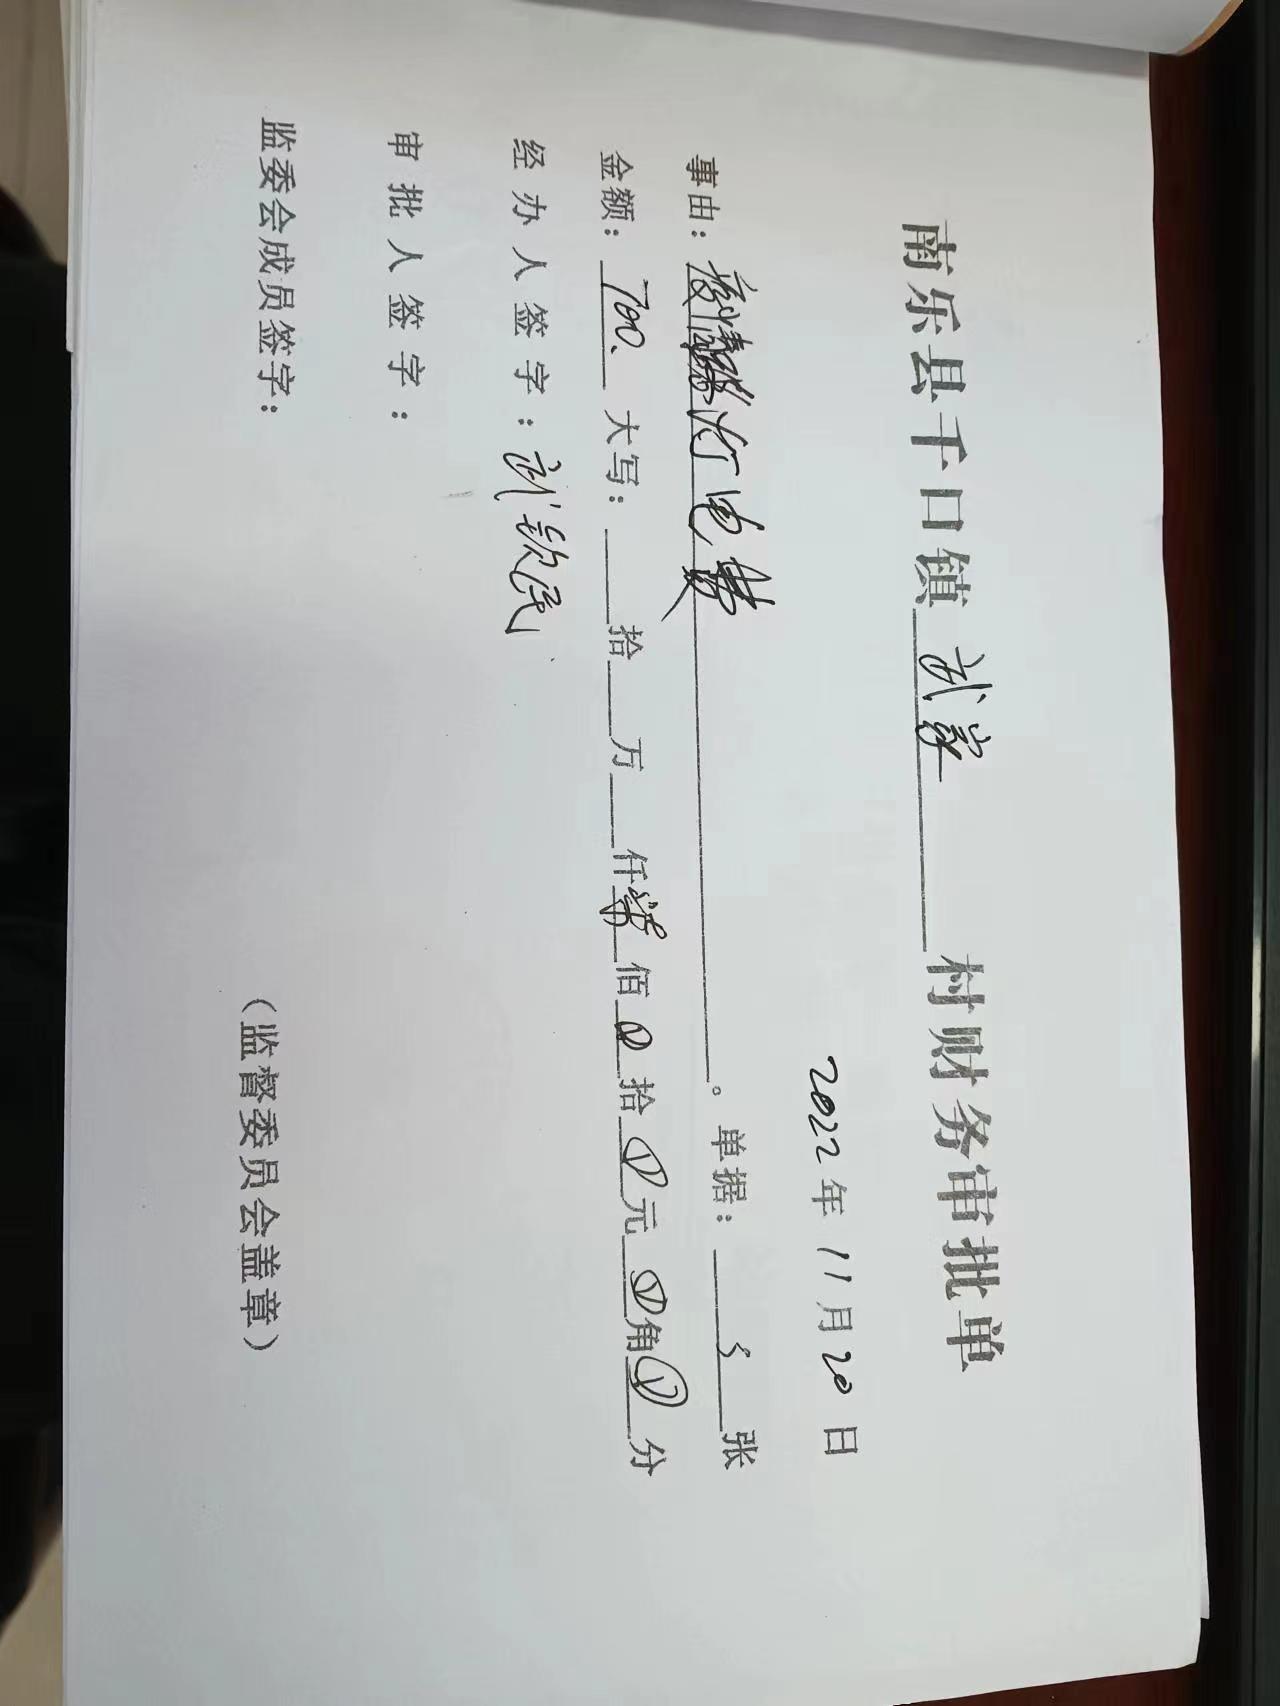 南乐县千口镇 村财务审批单
2022年11月20日
事由：路灯电费。单据：5张
金额：700、大写：拾 万 仟柒佰0拾0元0角0分
经办人签字：
审批人签字：
监委会成员签字：
（监督委员会盖章）